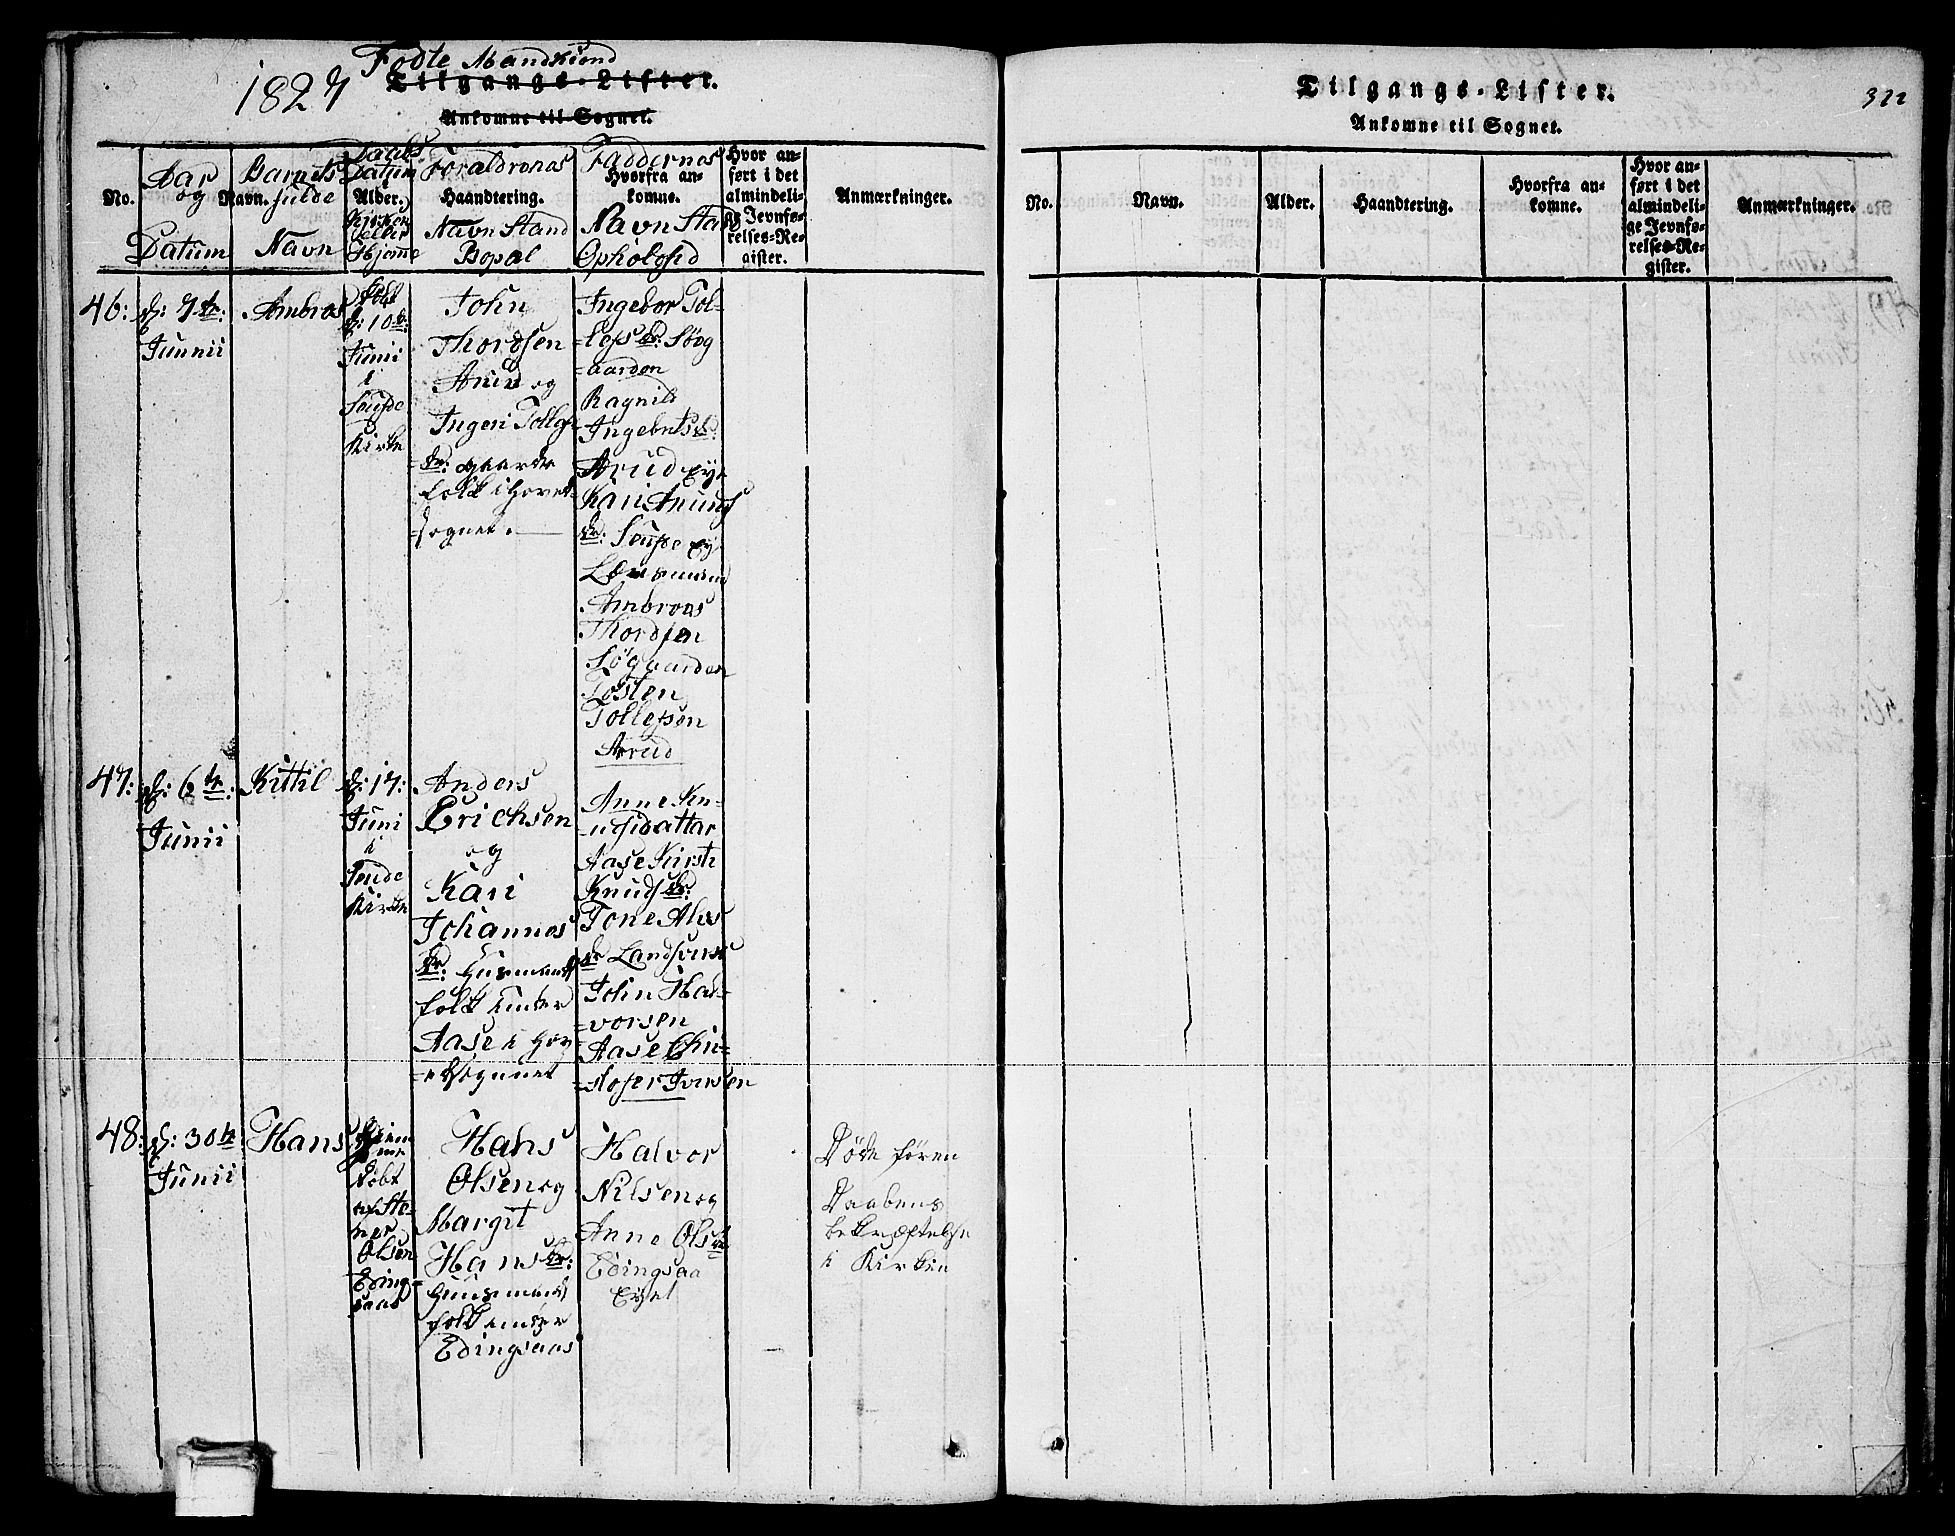 Fødte Mandkiønd
1827
Tilgangs-Lister.
Ankomne til Sognet.
No.
Aar og Datum
Navn.
Barnets fulde Navn
Daabs Datum
Alder.
Kirken eller Hjemme
Forældrenes
Haandtering.
Navn Stand
Bopæl
Faddernes
Hvorfra ankomne.
Navn Stand
Opholdsed
Hvor an-
ført i det
almindeli-
ge Jevnfø-
relses-Re-
gister.
Anmærkninger.
46: d: 7de: Junii
Ambros
Døbt
d: 10de:
Junii
i
Soufde
Kirke
John
Thordsen
Arud og
Ingeri Tollefs
dr: gaardr
folk i Hovet
=sognet.
Ingebor Tol-
=lefs dr: Søeg
=aarden
Ragnild
Ingebrts dr:
Arud Eye
Kari Anunds
dr: Soufde Ey
Lønsmand
Ambroos
Thordsen
Søgaarden
Tosten
Tollefsen
Aarud
47: d: 6te: Junii
Kittil
d: 17:
Juni
i
Soude
Kirke
Anders
Erichsen
og
Kari
Johannes
dr: Husmands
folk under
Aase i Hov
=edsognet
Anne Kn-
=udsdatter
Aase Kirsti
Knuds dr:
Tone Alvs
dr Landsvirk
John Hal-
=vorsen
=Aase Chri-
=stofer Iversen
48: d: 30te Junii
Hans
Hiem
me
døbt
af Ste-
ner
Olsen
Eding-
saas
Hans
Olsen og
Margit
Hans dr:
Huusmands
folk under
Edingsaas
Halvor
Nilsen og
Anne Ols dr
Edingsaa
Eyet
Døde føren
Daabens
bekræftelse
i Kirken
Tilgangs-Lister.
Ankomne til Sognet.
322
No.
Navn.
Alder.
Haandtering.
Hvorfra an-
komne.
Hvor an-
ført i det
almindeli-
ge Jevnfø-
relses-Re-
gister.
Anmærkninger.